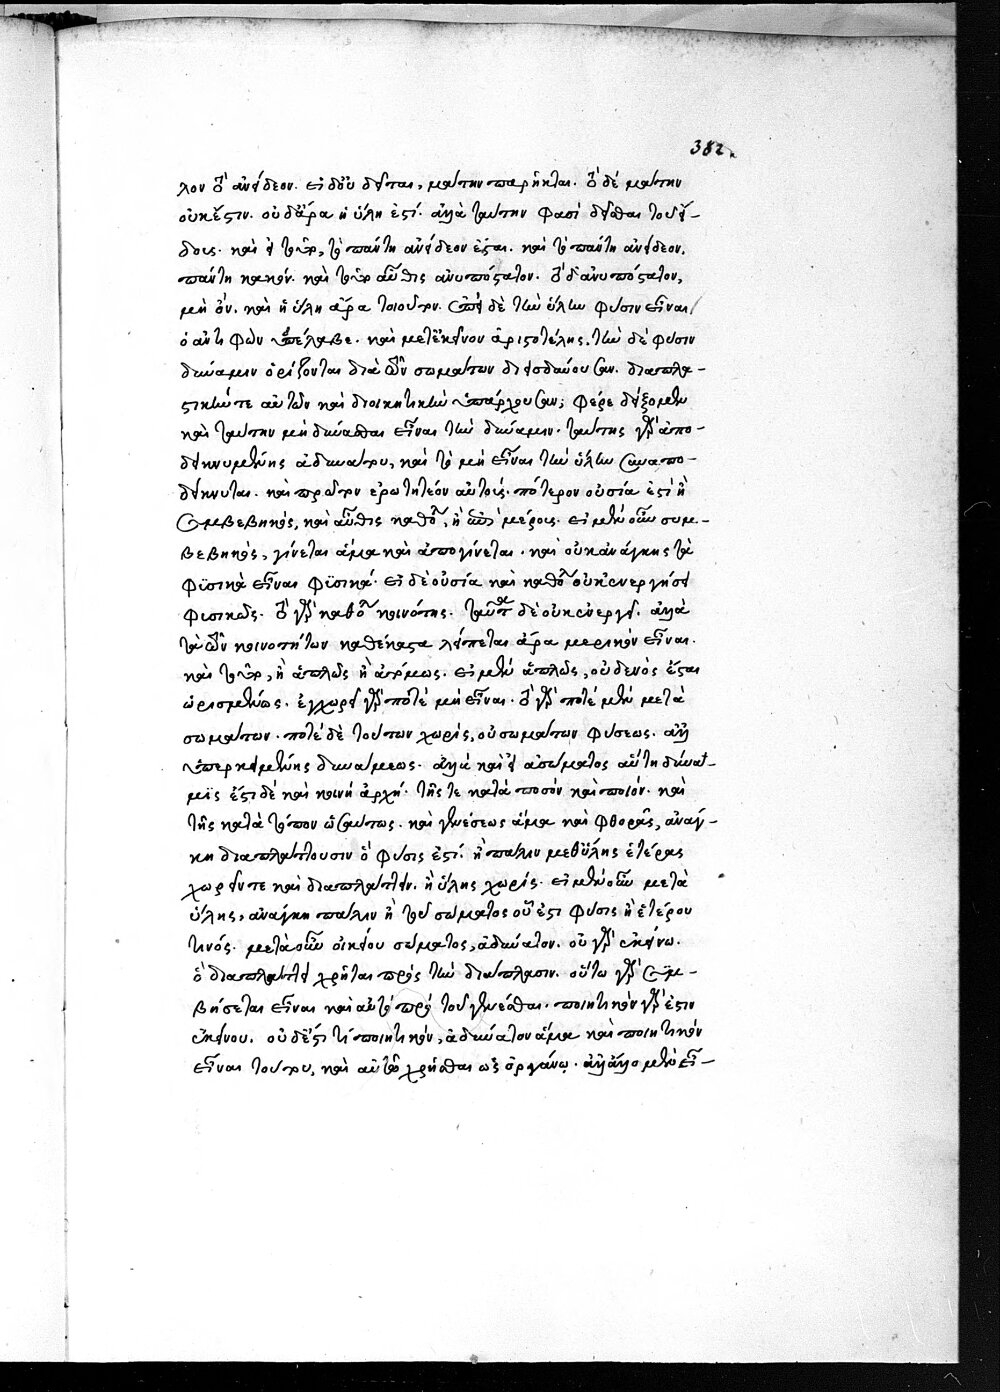 382.
λον τὸ ἀνείδεον. εἰ δ' οὐ δεῖται, μάτην παρῆκται. τὸ δὲ μάτην
οὐκ ἔστιν. οὐδ' ἄρα ἡ ὕλη ἐστί. ἀλλὰ ταύτην φασὶ δεῖσθαι τοῦ εἴ-
δους. καὶ εἰ τοῦτο, τὸ πάντη ἀνείδεον ἔσται. καὶ τὸ πάντη ἀνείδεον,
πάντη κακόν. καὶ τοῦτο αὖθις ἀνυπόστατον. τὸ δ' ἀνυπόστατον,
μὴ ὄν. καὶ ἡ ὕλη ἄρα τοιοῦτον. δὲ τὴν ὕλην φύσιν εἶναι
ὁ ἀντιφῶν ὑπέλαβε. καὶ μετ' ἐκεῖνον ἀριστοτέλης. τὴν δὲ φύσιν
δύναμιν ὁρίζονται διὰ τῶν σωμάτων διεισδύουσαν. διαπλα-
στικήν τε αὐτῶν καὶ διοικητικὴν ὑπάρχουσαν; φέρε δείξομεν
καὶ ταύτην μὴ δύνασθαι εἶναι τὴν δύναμιν. ταύτης γὰρ ἀπο-
δεικνυμένης ἀδυνάτου, καὶ τὸ μὴ εἶναι τὴν ὕλην συναπο-
δείκνυται. καὶ πρῶτον ἐρωτητέον αὐτούς. πότερον οὐσία ἐστὶ ἢ
συμβεβηκός, καὶ αὖθις καθόλου, ἢ ἐπὶ μέρους. εἰ μὲν οὖν συμ-
βεβηκός, γίνεται ἅμα καὶ ἀπογίνεται. καὶ οὐκ ἀνάγκης τὰ
φϋσικὰ εἶναι φϋσικά. εἰ δὲ οὐσία καὶ καθόλου οὐκ ἐνεργήσει
φυσικῶς. τὸ γὰρ καθόλου κοινότης. ταῦτα δὲ οὐκ ἐνεργεῖ. ἀλλὰ
τὰ τῶν κοινοτήτων καθέκαστα λείπεται ἄρα μερικὸν εἶναι.
καὶ τοῦτο, ἢ ἁπλῶς ἢ ἀτόμως. εἰ μὲν ἁπλῶς, οὐδενὸς ἔσται
ὡρισμένως. ἐγχωρεῖ γὰρ ποτὲ μὴ εἶναι. τὸ γὰρ ποτὲ μὲν μετὰ
σωμάτων. ποτὲ δὲ τούτων χωρίς, οὐ σωμάτων φύσεως. ἀλλ'
ὑπερκειμένης δυνάμεως. ἀλλὰ καὶ εἰ ἀσώματος αὕτη δύνα-
μϊς ἐστι δὲ καὶ κοινὴ ἀρχή. τῆς τε κατὰ ποσὸν καὶ ποιόν. καὶ
τῆς κατὰ τόπον ὡσαύτως. καὶ γενέσεως ἅμα καὶ φθορᾶς, ἀνάγ-
κη διαπλάττουσιν ὃ φύσις ἐστί. ἢ πάλιν μεθ' ὕλης ἑτέρας
χωρεῖν τε καὶ διαπλάττειν. ἢ ὕλης χωρίς. εἰ μὲν οὖν μετὰ
ὕλης, ἀνάγκη πάλιν ἢ τοῦ σώματος οὗ ἐστι φύσις ἢ ἑτέρου
τινός. μετὰ οὖν οἰκείου σώματος, ἀδύνατον. οὐ γὰρ ἐκείνω.
ὃ διαπλάττει χρῆται πρὸς τὴν διάπλασιν. οὕτω γὰρ συμ-
βήσεται εἶναι καὶ αὐτὸ πρὸ τοῦ γενέσθαι. ποιητικὸν γάρ ἐστιν
ἐκείνου. οὐδ' ἔστι τι ποιητικόν, ἀδύνατον ἅμα καὶ ποιητικὸν
εἶναι τούτου, καὶ αὐτῶ χρῆσθαι ὡς ὀργάνῳ. ἀλλ' ἄλλο μὲν εἶ-